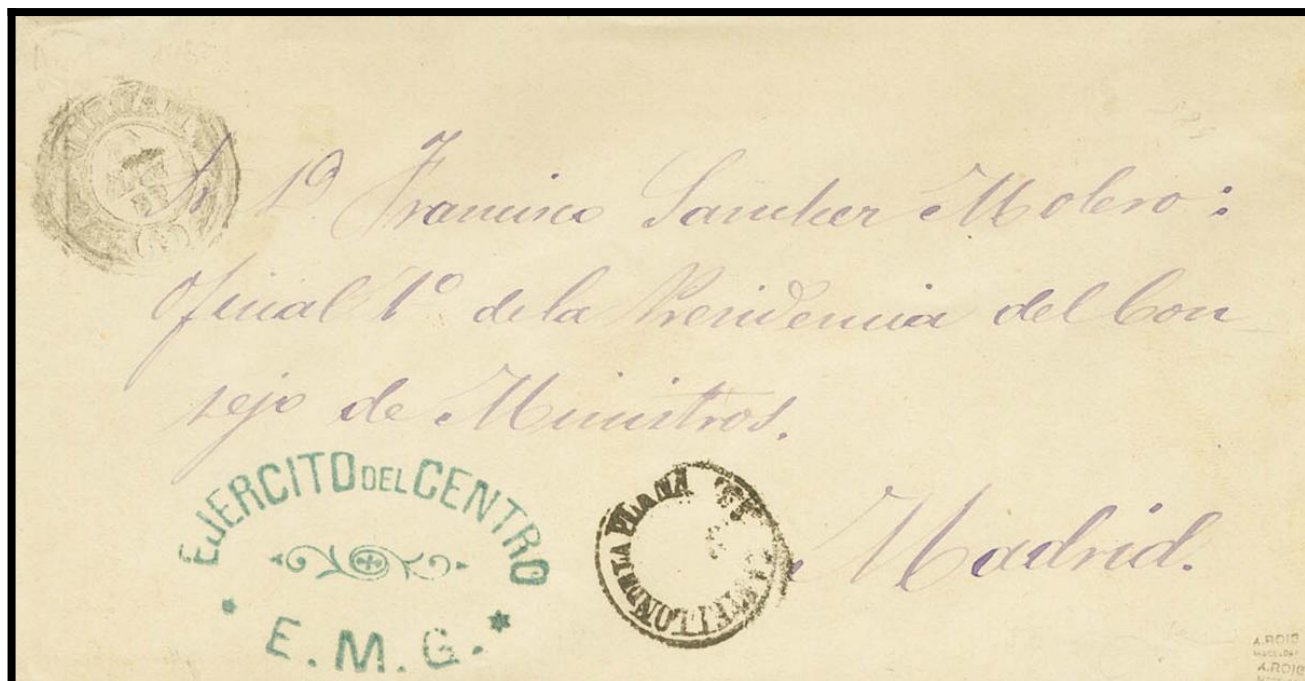 Sr. Dⁿ Francisco Sancher Molero:
Oficial 1º de la Presidencia del Con
sejo de Ministros.
Madrid.
EJERCITO DEL CENTRO
E. M. G.
CASTELLON DE LA PLANA
A. ROIG
A. ROIG